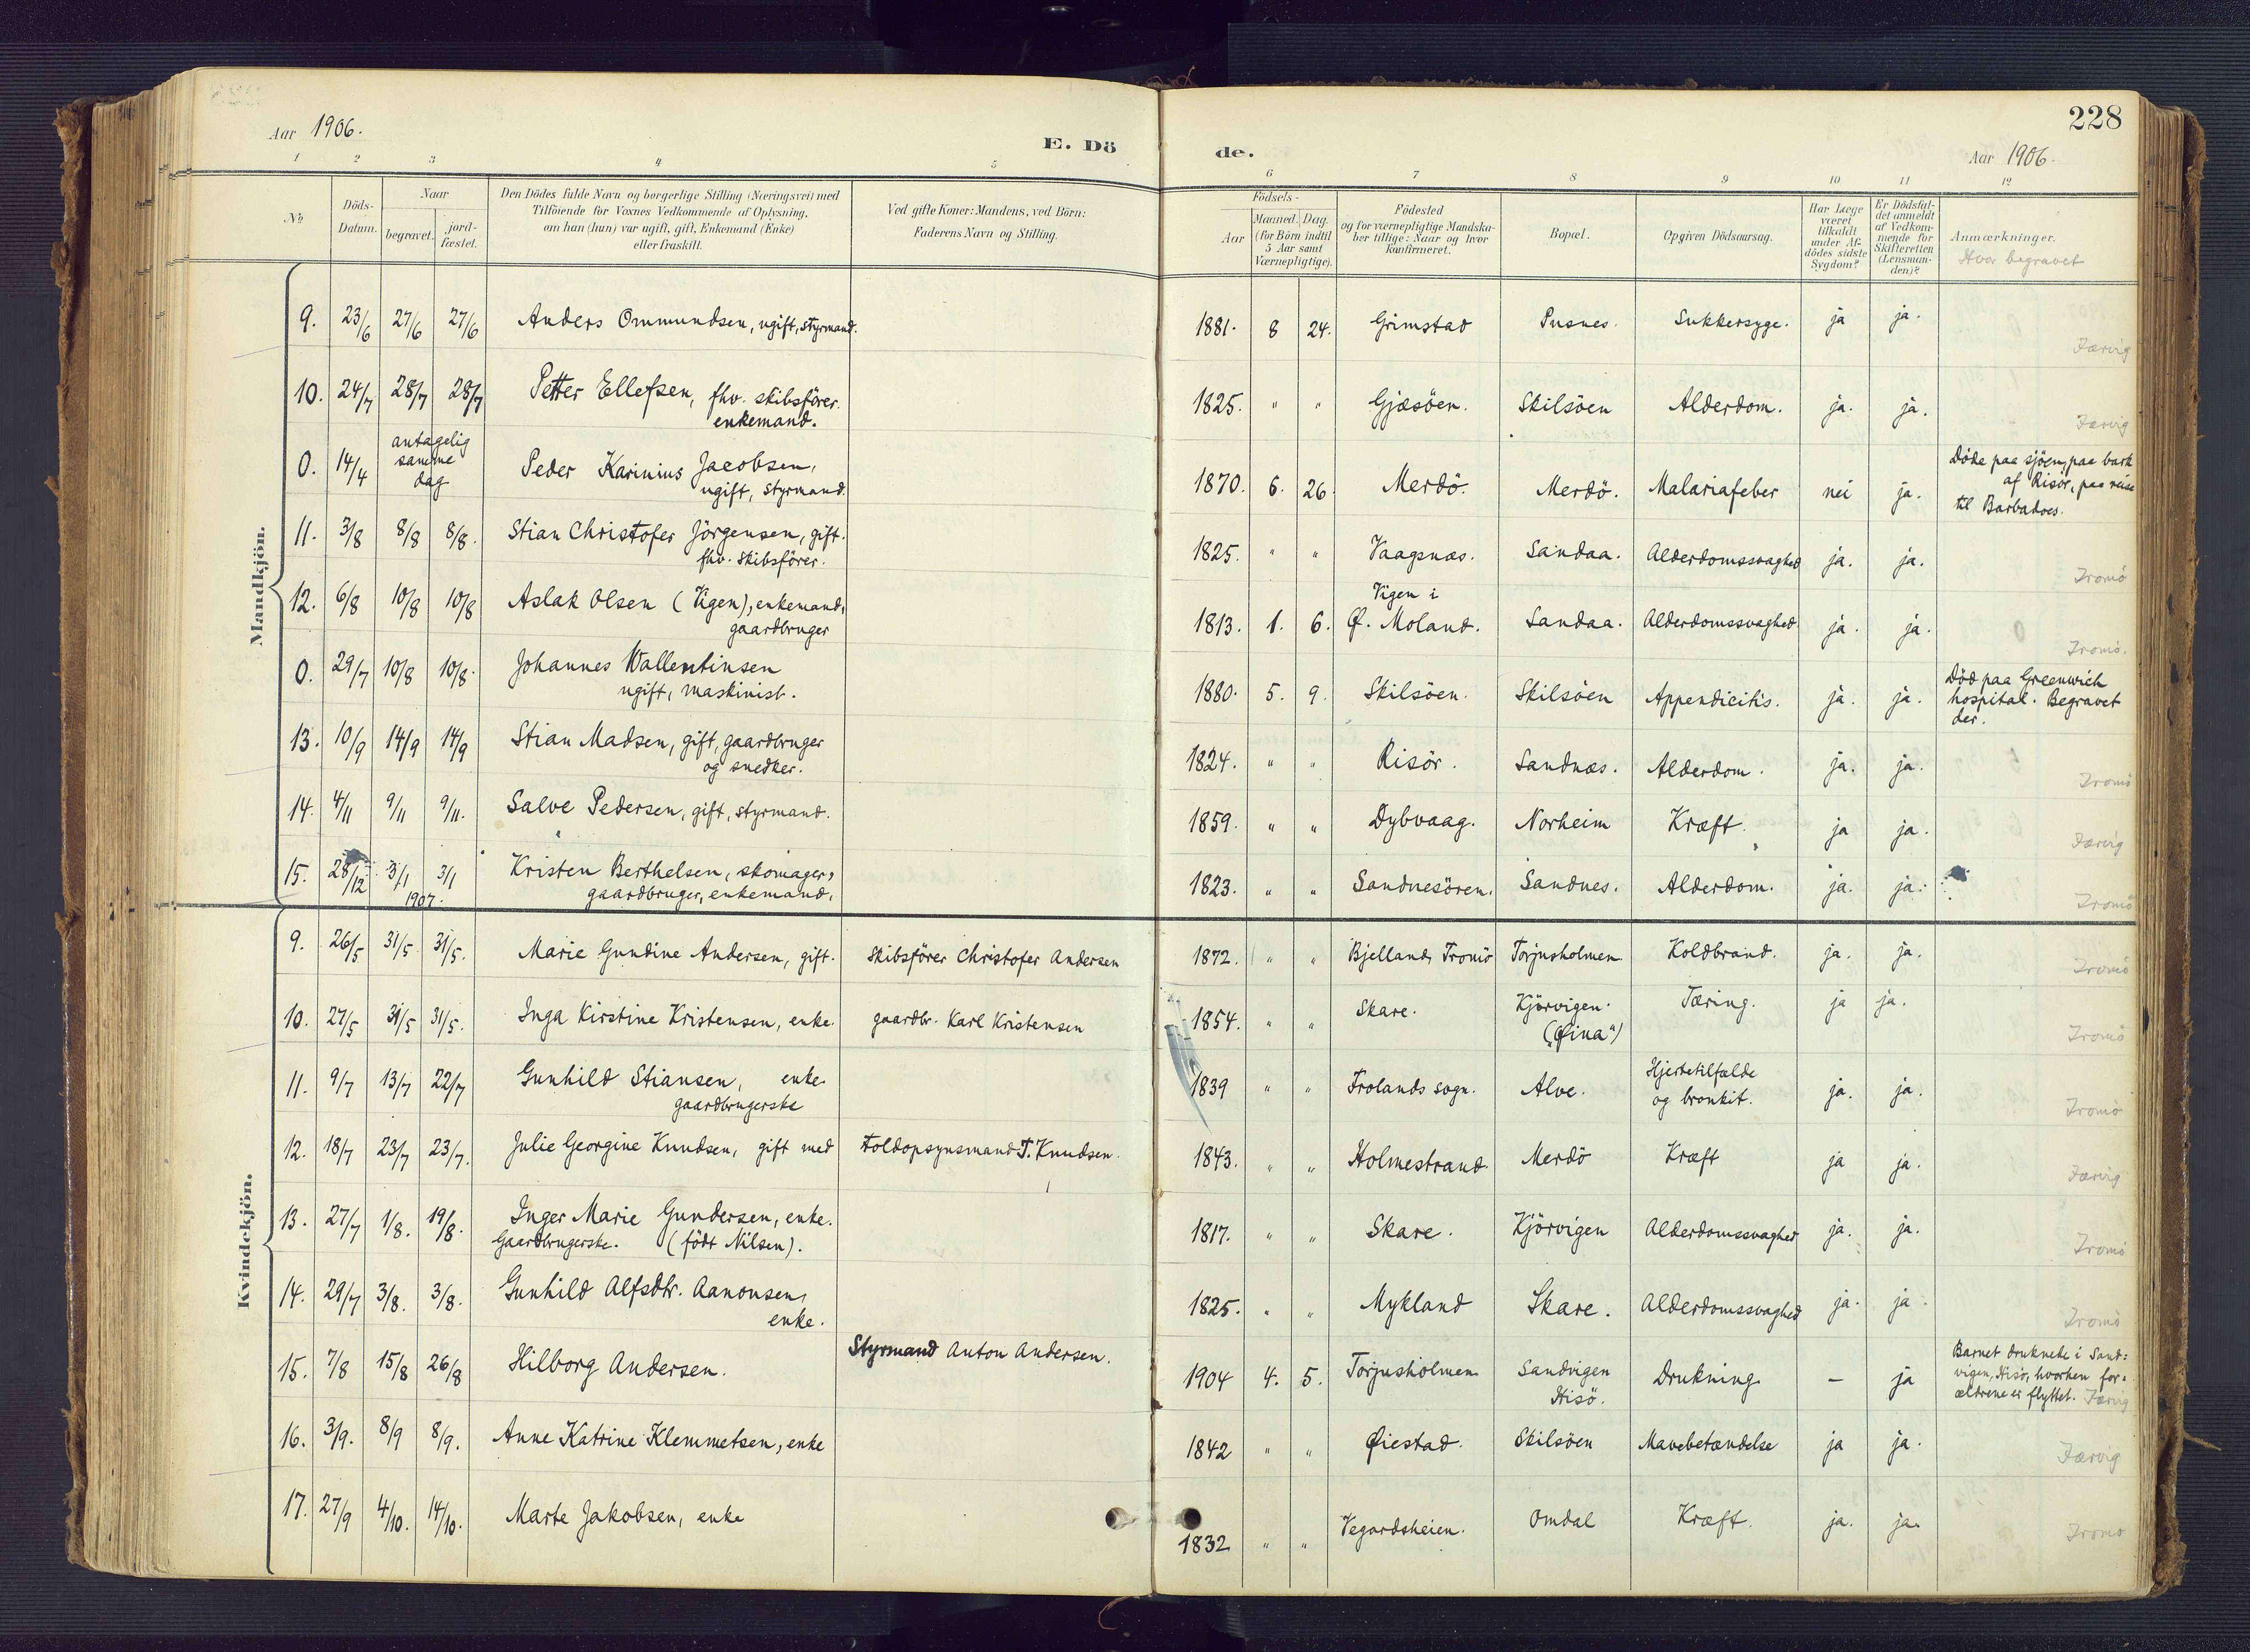 Aar 1906.
E. Dö
1 2 3 4 5
№
Döds-
Datum.
Naar
begravet.
jord-
fæstet.
Den Dödes fulde Navn og borgerlige Stilling (Næringsvei) med
Tilföiende for Voxnes Vedkommende af Oplysning,
om han (hun) var ugift, gift, Enkemand (Enke)
eller fraskilt.
Ved gifte Koner: Mandens, ved Börn:
Faderens Navn og Stilling.
228
de.
Aar 1906.
6 7 8 9 10 11 12
Födsels-
Aar
Maaned. Dag.
(for Börn indtil
5 Aar samt
Værnepligtige).
Födested
og for værnepligtige Mandska-
ber tillige: Naar og hvor
konfirmeret.
Bopæl.
Opgiven Dödsaarsag.
Har Læge
været
tilkaldt
under Af-
dödes sidste
Sygdom?
Er Dödsfal-
det anmeldt
af Vedkom-
mende for
Skifteretten
(Lensman-
den)?
Anmærkninger.
Hvor begravet
Mandkjön.
9. 23/6 27/6 27/6 Anders Ommundsen, ugift, styrmand. 1881. 8 24. Grimstad Pusnes. Sukkersyge. ja ja.
Færvig
10. 24/7 28/7 28/7 Petter Ellefsen, fhv. skibsförer. 1825. " " Gjæsöen. Skilsöen Alderdom. ja. ja.
enkemand.
Færvig
0. 14/4 antagelig
samme
dag
Peder Karinius Jacobsen,
ugift, styrmand.
1870. 6. 26. Merdö. Merdö. Malariafeber nei ja.
Döde paa sjöen, paa bark
af Risör, paa reise
til Barbadoes.
11. 3/8 8/8 8/8. Stian Christofer Jörgensen, gift.
fhv. skibsförer.
1825. " " Vaagsnæs. Sandaa. Alderdomssvaghed ja. ja.
Tromö
12. 6/8 10/8 10/8 Aslak Olsen (Vigen), enkemand,
gaardbruger
1813. 1. 6. Vigen i
Ø. Moland. Sandaa. Alderdomssvaghed. ja. ja.
Tromö.
0. 29/7 10/8 10/8. Johannes Wallentinsen
ugift, maskinist.
1880. 5. 9. Skilsöen. Skilsöen Appendicitis. ja. ja.
Död paa Greenwich
hospital. Begravet
der.
13. 10/9 14/9 14/9 Stian Madsen, gift, gaardbruger
og snedker.
1824. " " Risör. Sandnæs. Alderdom. ja. ja.
Tromö
14. 4/11 9/11 9/11. Salve Pedersen, gift, styrmand. 1859. " " Dybvaag. Norheim Kræft. ja ja.
Færvig
15. 28/12 3/1 3/1 Kristen Berthelsen, skomager,
1907. gaardbruger, enkemand.
1823. " " Sandnesören. Sandnes. Alderdom. ja. ja.
Tromö
Kvindekjön.
9. 26/5 31/5 31/5. Marie Gundine Andersen, gift. Skibsförer Christofer Andersen 1872. " " Bjelland, Tromö Torjusholmen Koldbrand. ja. ja.
Tromö
10. 27/5 31/5 31/5. Inga Kirstine Kristensen, enke. gaardbr. Karl Kristensen 1854. " " Skare. Kjörvigen. Tæring. ja ja.
("Øina")
Tromö
11. 9/7 13/7 22/7 Gunhild Stiansen, enke
gaardbrugerske
1839 " " Frolands sogn. Alve. Hjertetilfælde
og bronkit. ja. ja.
Tromö
12. 18/7 23/7 23/7. Julie Georgine Knudsen, gift med toldopsynsmand T. Knudsen. 1843. " " Holmestrand. Merdö Kræft ja ja.
Færvig
13. 27/7 1/8. 19/8. Inger Marie Gundersen, enke.
Gaardbrugerske. (födt Nilsen).
1817. " " Skare. Kjörvigen Alderdomssvaghed ja. ja.
Tromö
14. 29/7 3/8. 3/8. Gunhild Alfsdtr. Aanonsen,
enke.
1825. " " Mykland Skare. Alderdomssvaghed ja. ja.
Tromö
15. 7/8 15/8 26/8 Hilborg Andersen. Styrmand Anton Andersen. 1904 4. 5. Torjusholmen Sandvigen
Hisö. Drukning — ja
Barnet druknede i Sand-
vigen, Hisö, hvorhen for-
ældrene er flyttet. Færvig
16. 3/9. 8/9 8/9. Anne Katrine Klemmetsen, enke 1842 " " Øiestad. Skilsöen Mavebetændelse ja ja.
Færvig
17. 27/9 4/10. 14/10. Marte Jakobsen, enke 1832 " " Vegardsheien. Omdal Kræft. ja. ja.
Tromö